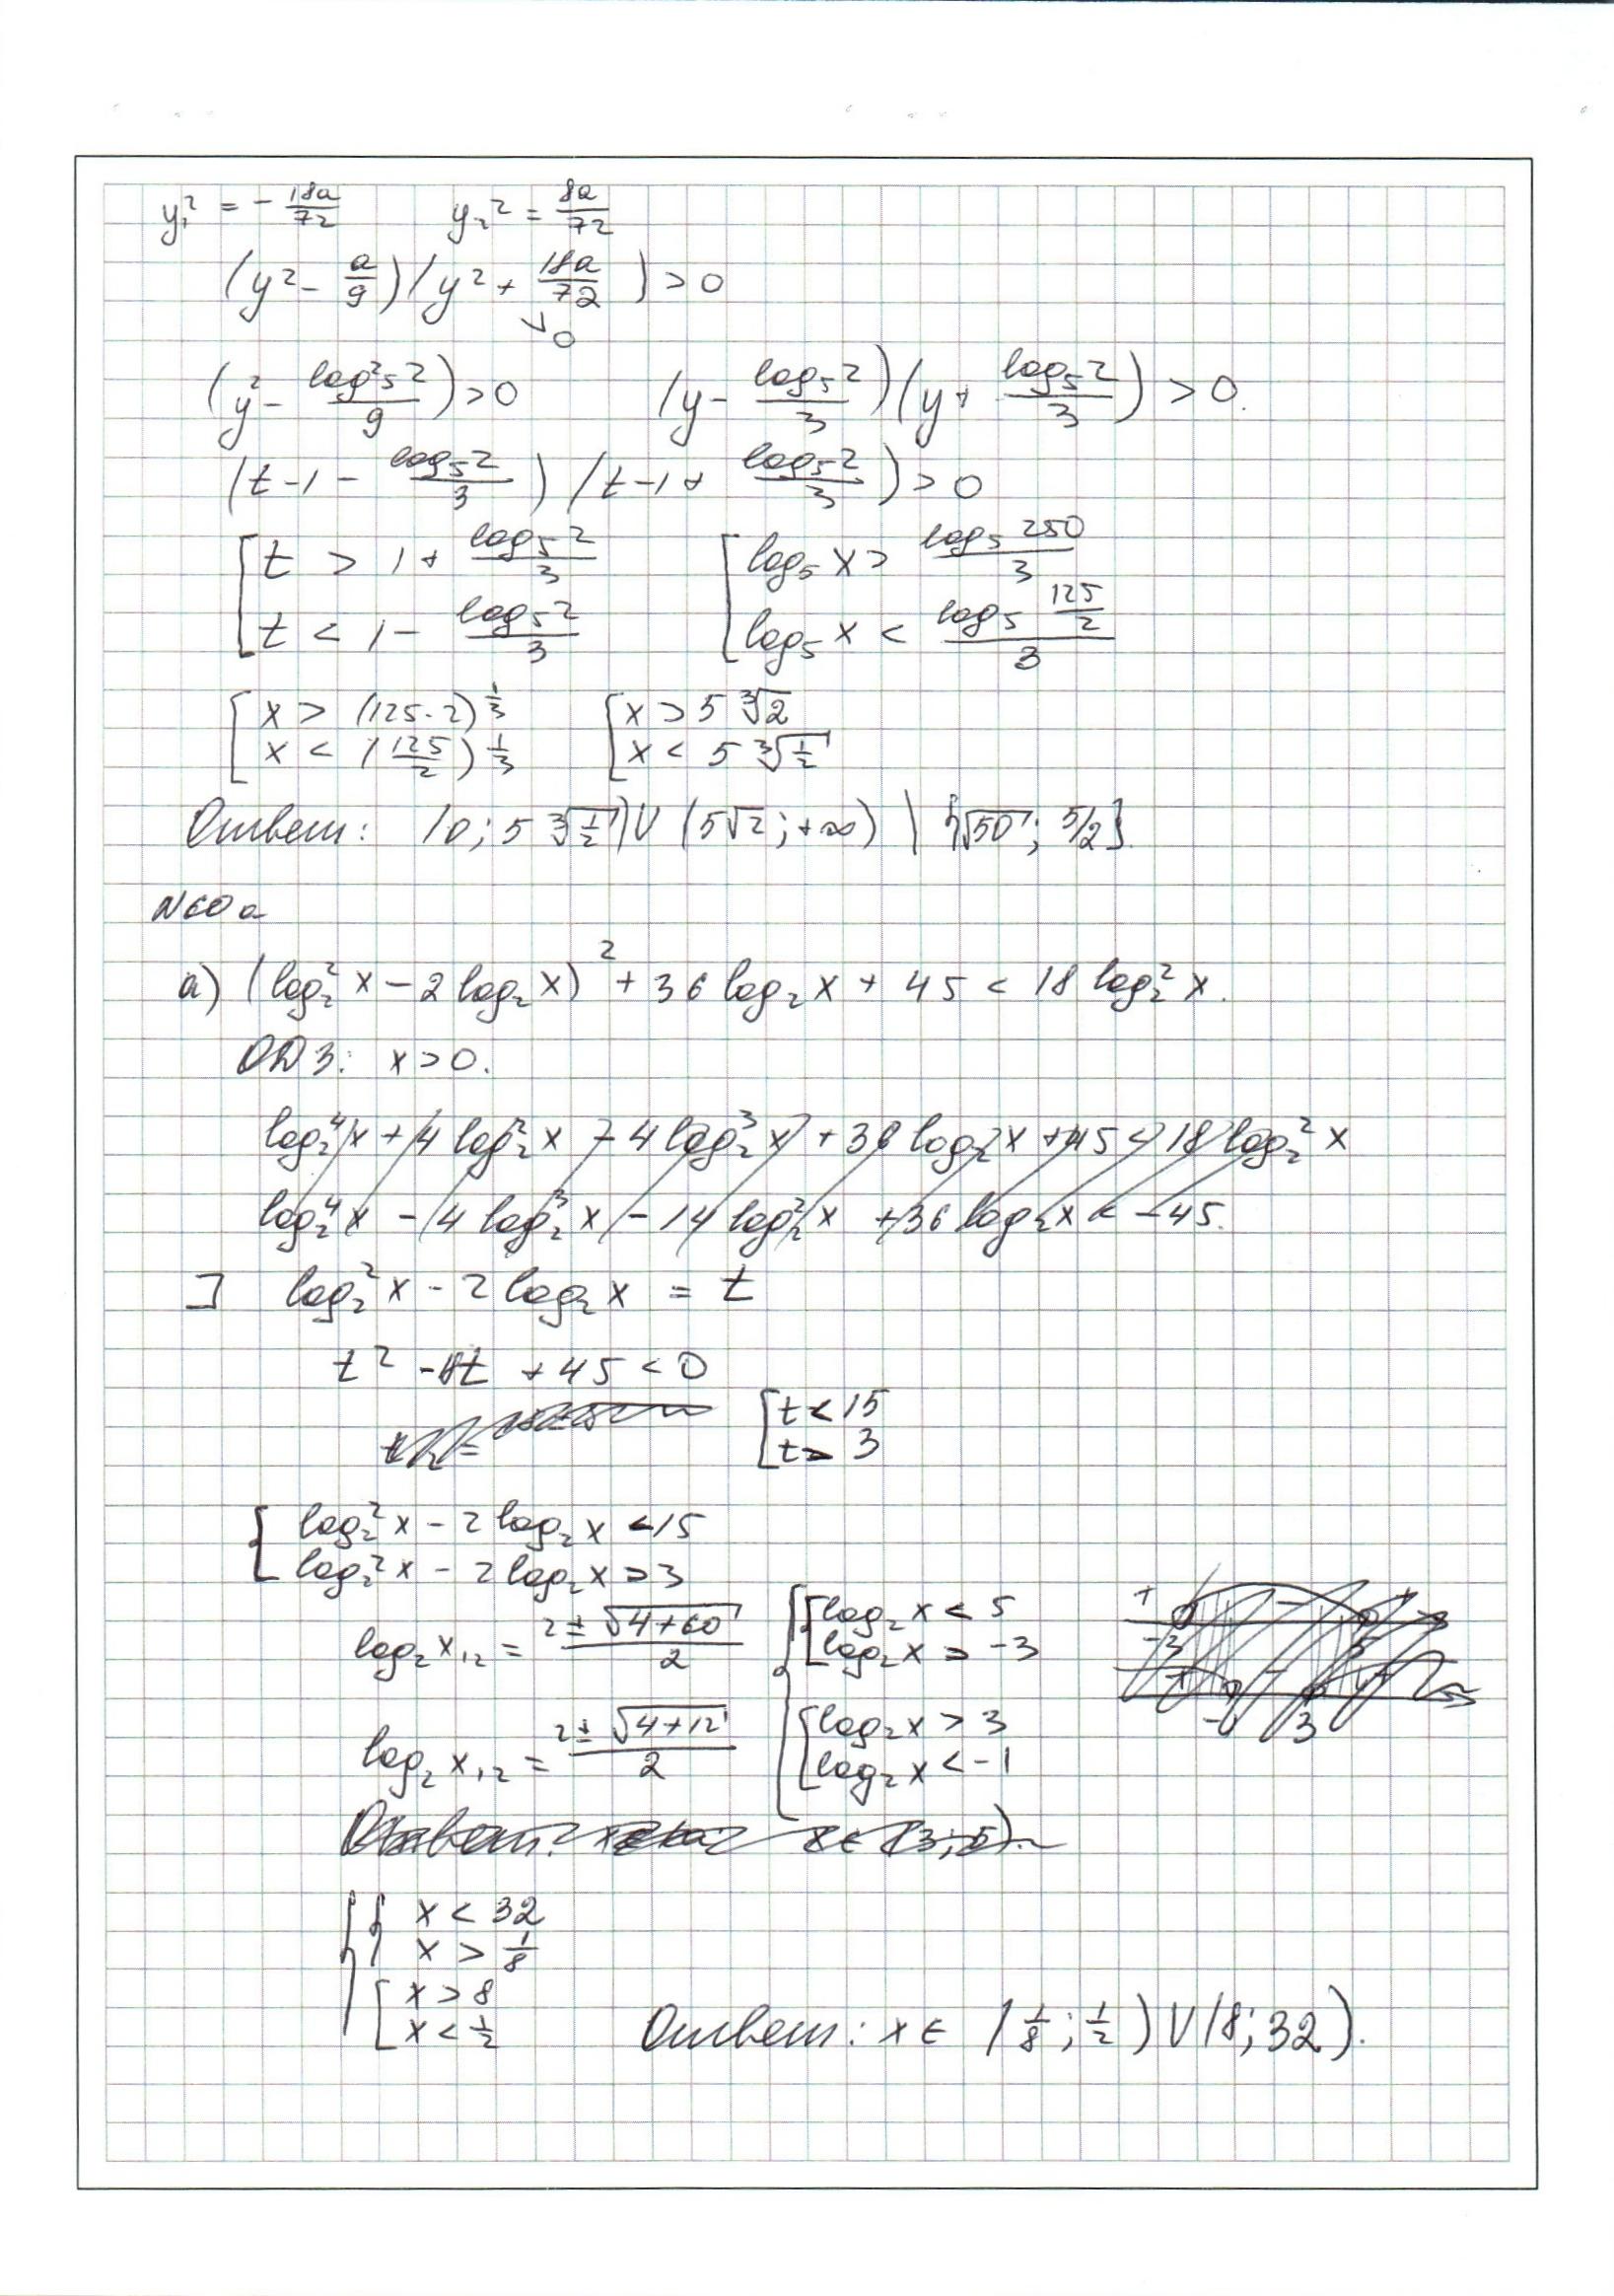 y₁² = - 18a/72    y₂² = 8a/72
(y² - a/9)(y² + 18a/72) > 0
∨ 0
(y² - log²₅2/9) > 0    (y - log₅2/3)(y + log₅2/3) > 0.
(t - 1 - log₅2/3)(t - 1 + log₅2/3) > 0
[ t > 1 + log₅2/3    [ log₅x > log₅250/3
[ t < 1 - log₅2/3    [ log₅x < log₅(125/2)/3
[ x > (125·2)^(1/3)    [ x > 5∛2
[ x < (125/2)^(1/3)    [ x < 5∛(1/2)
Ответ: (0; 5∛(1/2)) ∪ (5√2; +∞) \ {√50; 5/2}.
N60a
а) (log₂²x - 2log₂x)² + 36log₂x + 45 < 18log₂²x.
ОДЗ: x > 0.
log₂⁴x + 4log₂²x - 4log₂³x + 36log₂x + 45 < 18log₂²x
log₂⁴x - 4log₂³x - 14log₂²x + 36log₂x < -45.
] log₂²x - 2log₂x = t
t² - 18t + 45 < 0
[ t < 15
[ t > 3
{ log₂²x - 2log₂x < 15
{ log₂²x - 2log₂x > 3
log₂x₁,₂ = (2 ± √(4+60))/2    { [ log₂x < 5
[ log₂x > -3
log₂x₁,₂ = (2 ± √(4+12))/2    [ log₂x > 3
[ log₂x < -1
Ответ: x ∈ (3; 5).
{ { x < 32
{ x > 1/8
[ x > 8
[ x < 1/2
Ответ: x ∈ (1/8; 1/2) ∪ (8; 32).